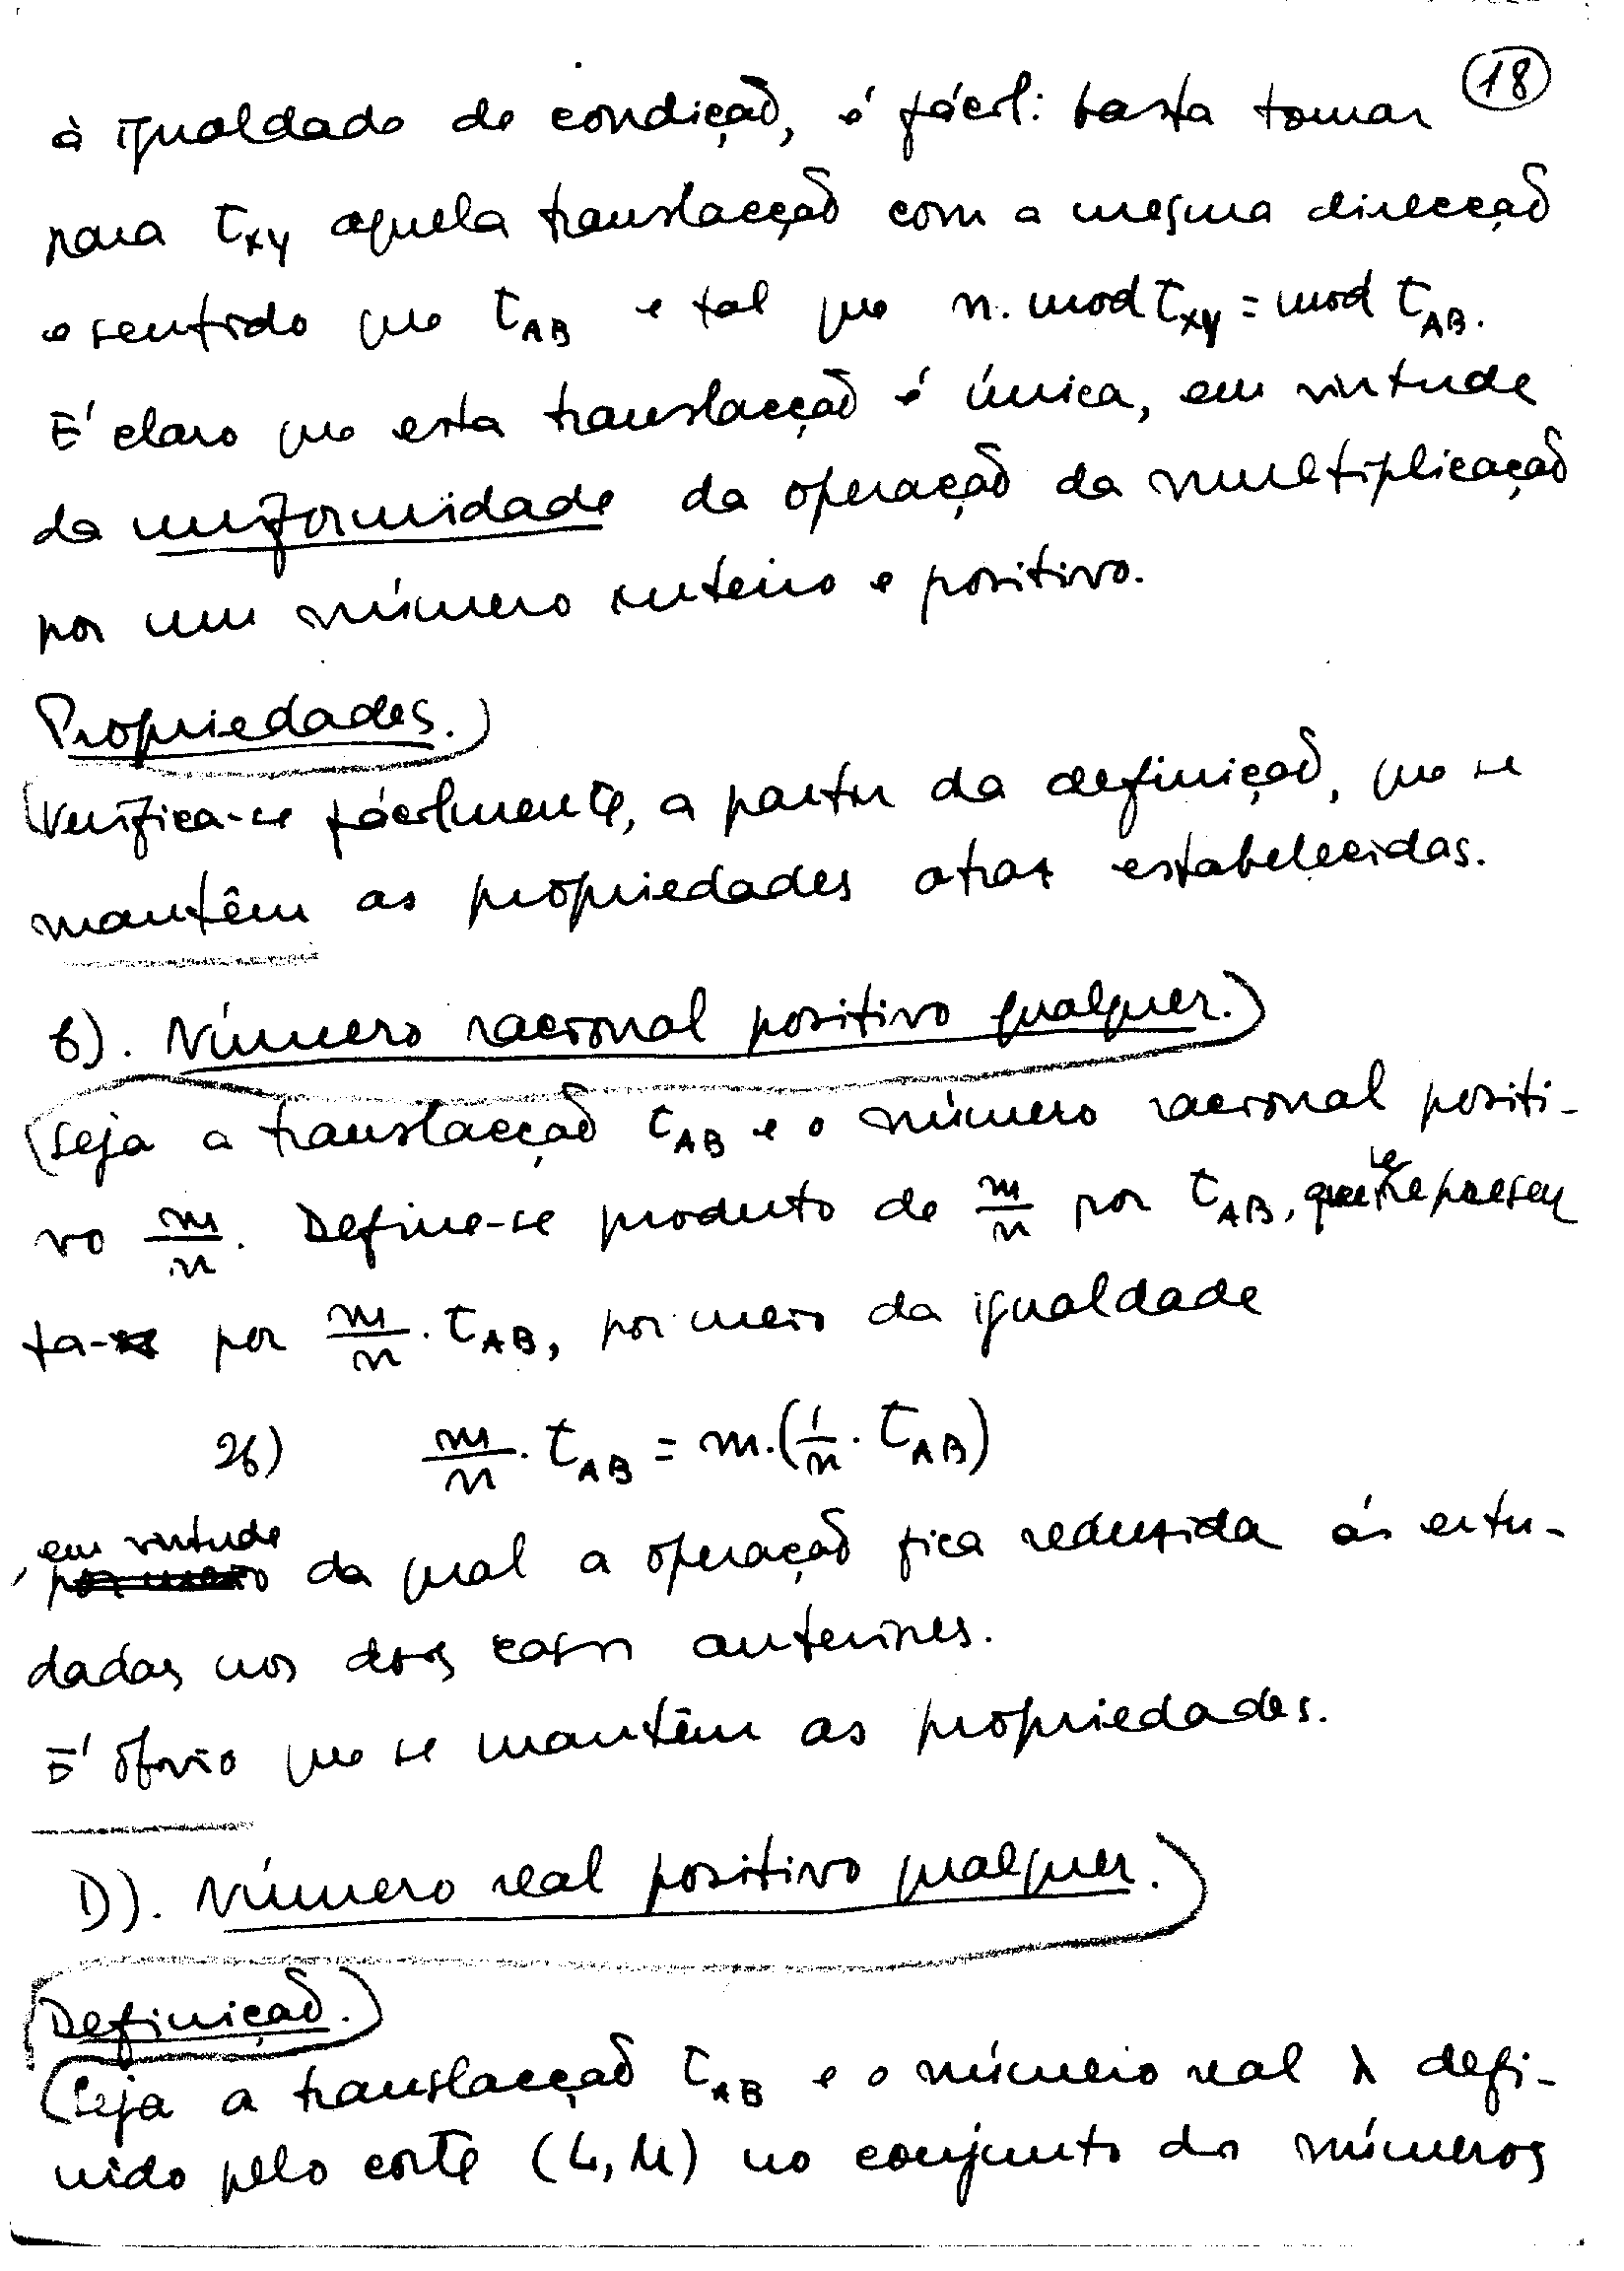 18
à igualdade de condição, é fácil: basta tomar
para τ_XY aquela translacção com a mesma direcção
e sentido que τ_AB e tal que n. mod τ_XY = mod τ_AB.
É claro que esta translacção é única, em virtude
da uniformidade da operação da multiplicação
por um número inteiro e positivo.
Propriedades.
Verifica-se fácilmente, a partir da definição, que se
mantêm as propriedades atraz estabelecidas.
b). Número racional positivo qualquer.
Seja a translacção τ_AB e o número racional positi-
vo m/n. Define-se produto de m/n por τ_AB, que se represen
ta- por m/n . τ_AB, por meio da igualdade
26) m/n . τ_AB = m.(1/n . τ_AB)
, em virtude
por meio da qual a operação fica reduzida às estu-
dadas nos dois casos anteriores.
É óbvio que se mantêm as propriedades.
D). Número real positivo qualquer.
Definição.
Seja a translacção τ_AB e o número real λ defi-
nido pelo corte (L, M) no conjunto dos números